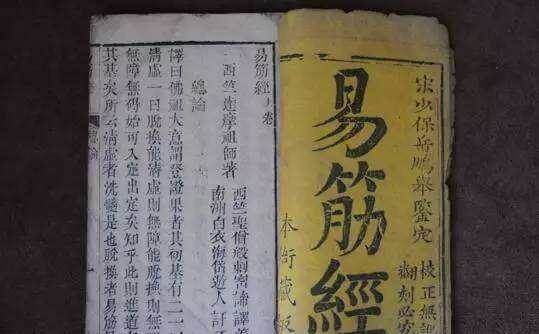 宋少保岳鵬舉鑒定
校正無訛
翻刻必究
易筋經
本衙藏板
易筋經上卷
西竺達摩祖師著
西竺聖僧般剌密諦譯義
南洲白衣海岱遊人訂
總論
譯曰佛祖大意謂登證果者其初基有二一
清虛一曰脫換能清虛則無障能脫換則無
無障無礙始可入定出定矣知乎此則進道
其基矣所云清虛者洗髓是也脫換者易筋
總論